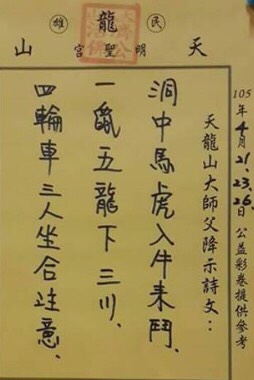 民雄
天龍山
明聖宮
105年4月21.23.26日 公益彩卷提供參考
天龍山大師父降示詩文：
洞中馬虎入牛來鬥、
一鼠五龍下三川、
四輪車三人坐合注意、